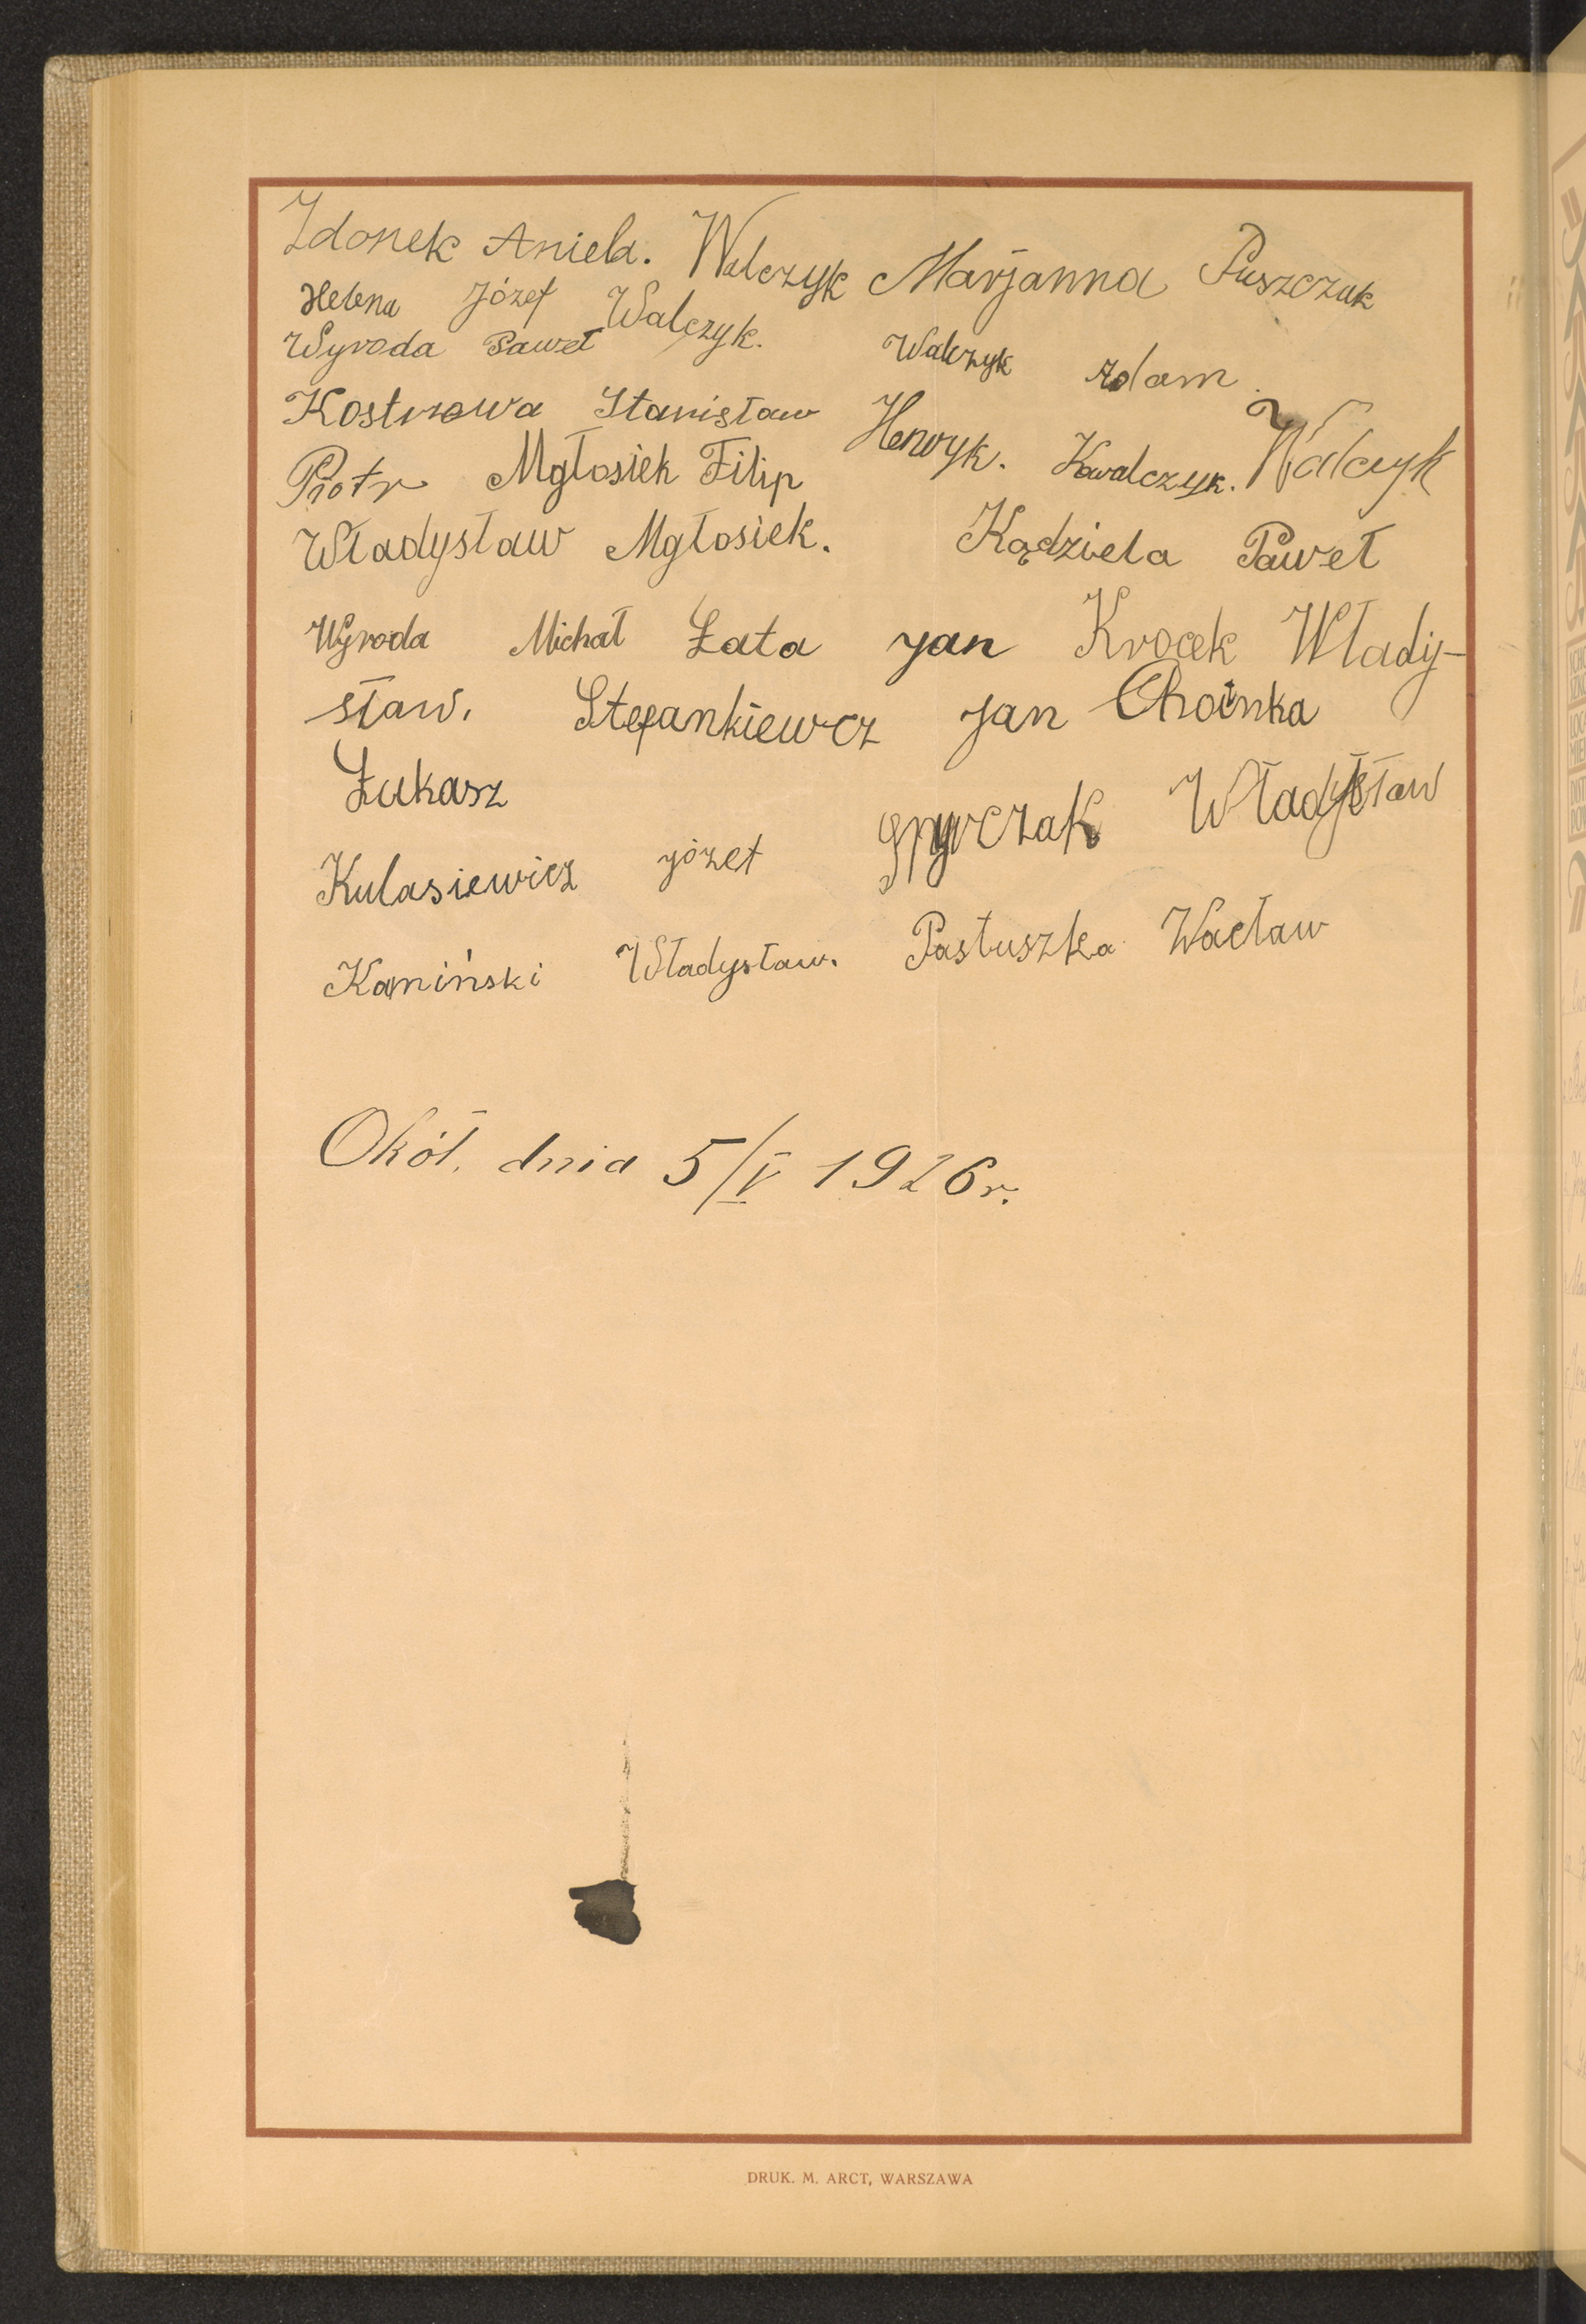 Zdonek Aniela. Walczyk Marjanna Puszczak
Helena Józef Walczyk.
Wyroda Paweł Walczyk Adam.
Kostrzewa Stanisław Henryk. Kowalczyk. Walczyk
Piotr Mgłosiek Filip
Władysław Mgłosiek. Kądziela Paweł
Wyroda Michał Łata Jan Krocek Włady-
sław. Stefankiewcz Jan Choinka
Łukasz Władysław
Kulasiewicz Józef
Kamiński Władysław. Pastuszka Wacław
Okół. dnia 5/V 1926 r.
DRUK. M. ARCT, WARSZAWA